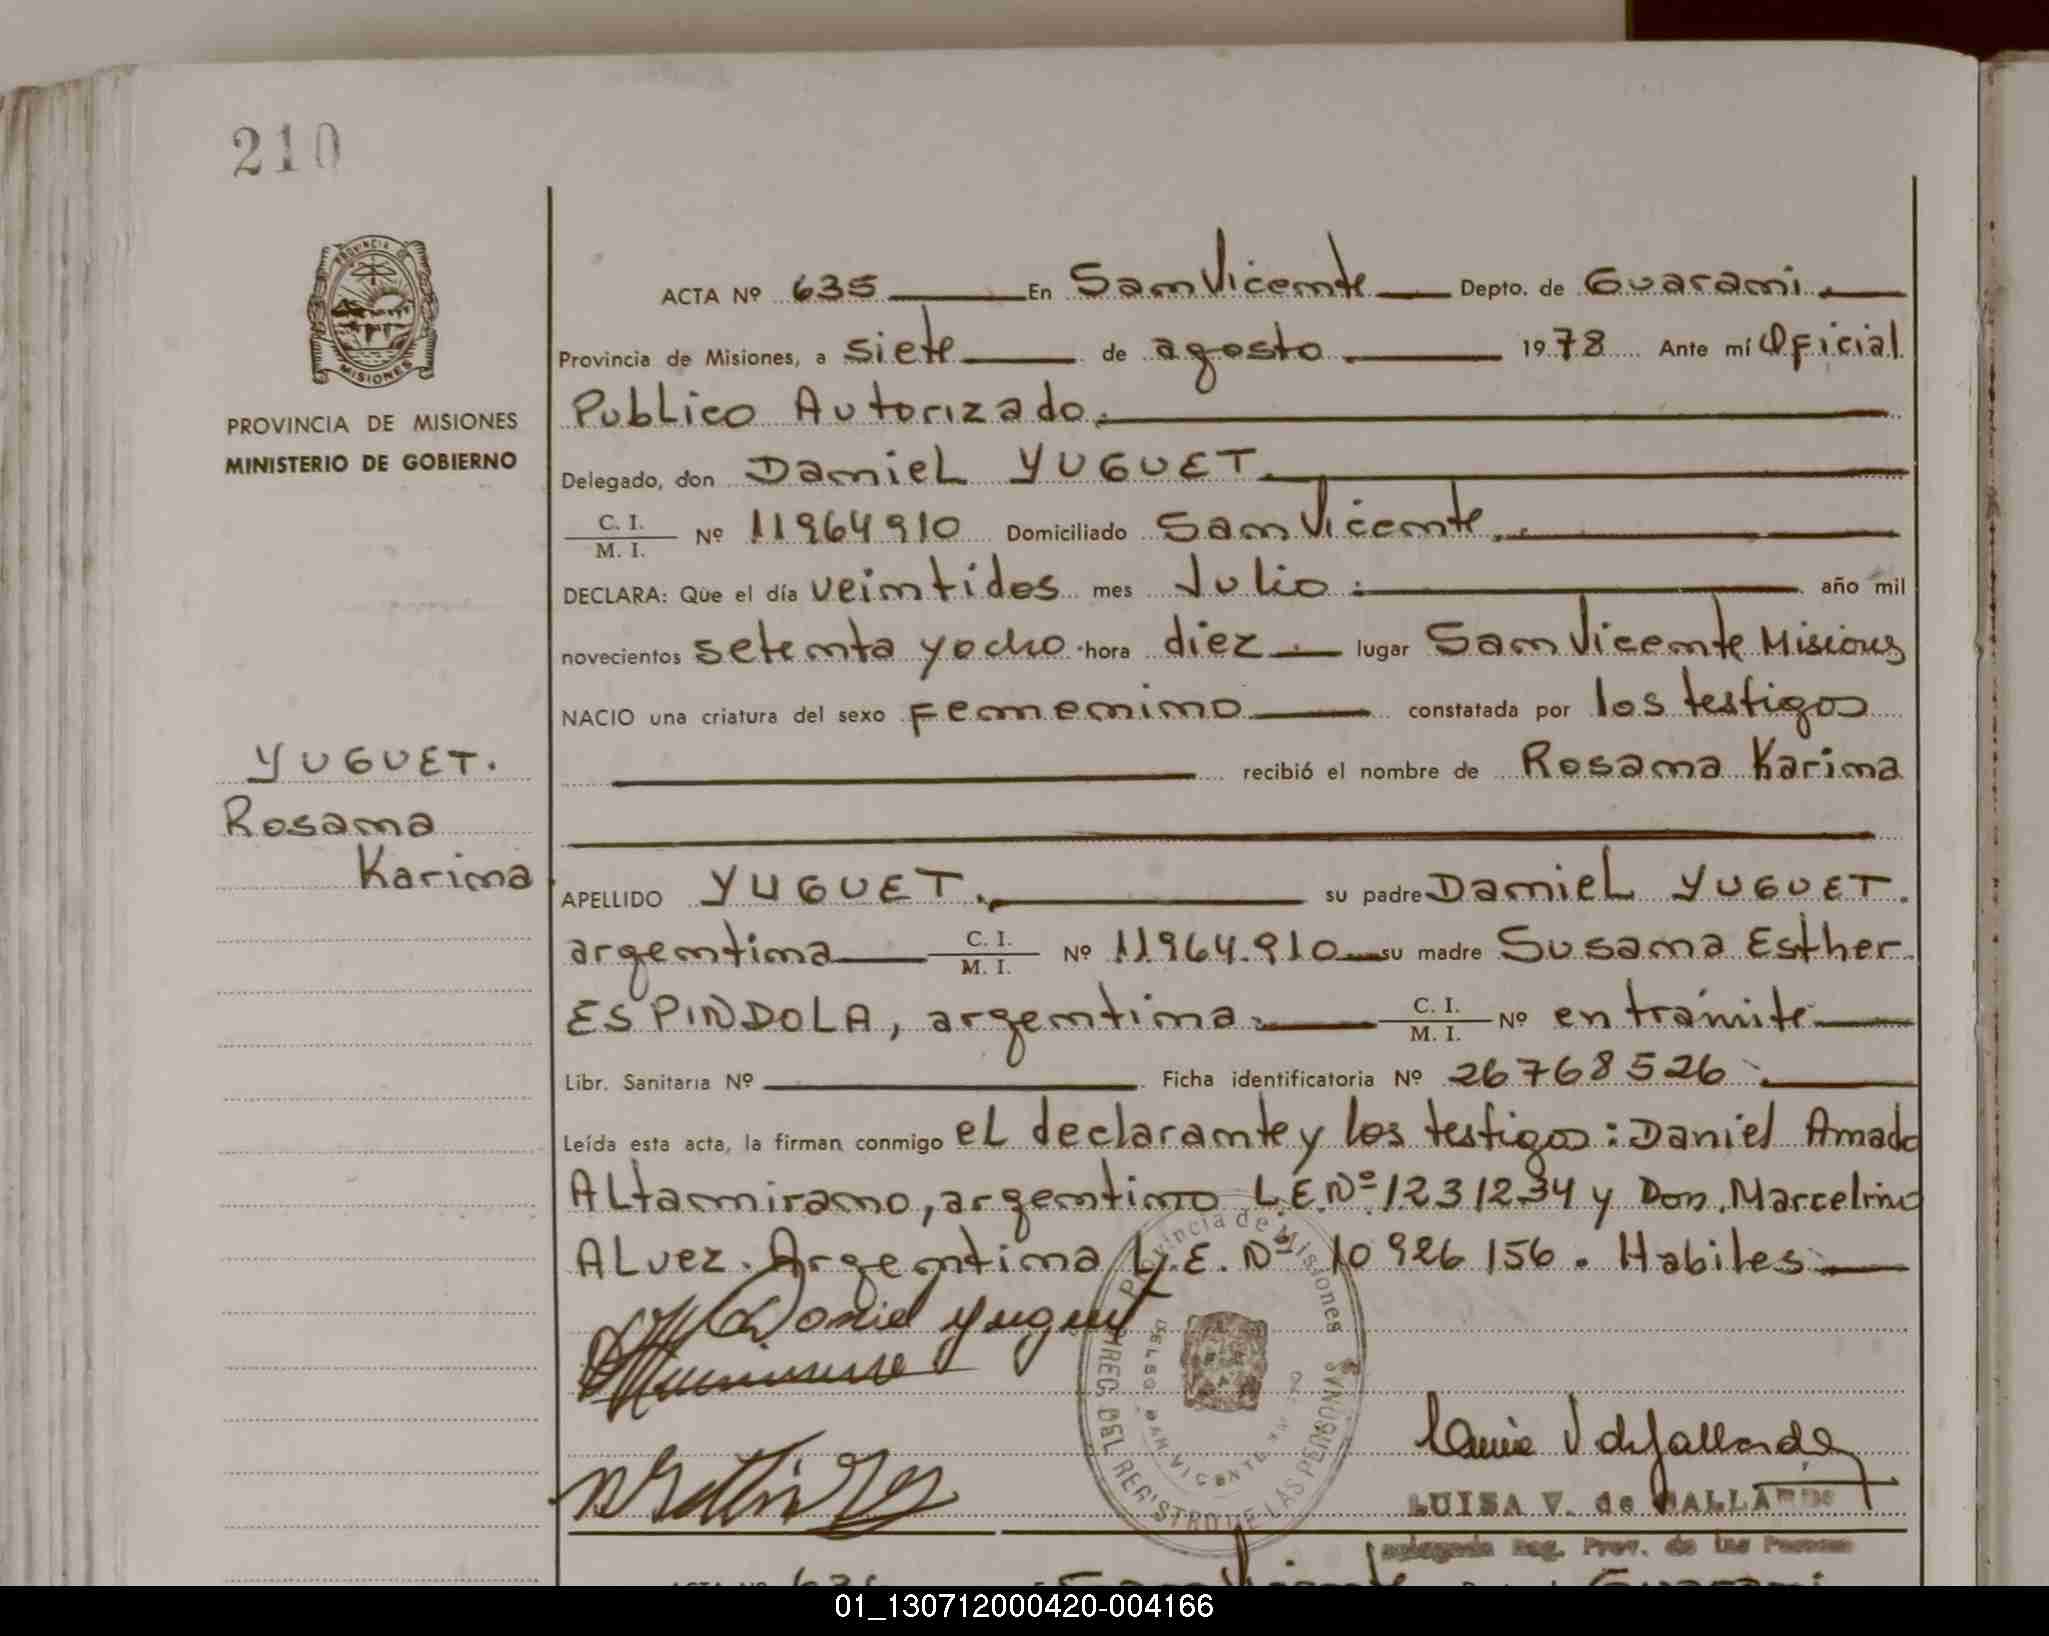 210
PROVINCIA DE
MISIONES
PROVINCIA DE MISIONES
MINISTERIO DE GOBIERNO
YUGUET.
Rosana
Karina
ACTA Nº 635 En San Vicente Depto. de Guarani.
Provincia de Misiones, a siete de agosto 1978 Ante mí Oficial
Publico Autorizado.
Delegado, don Daniel YUGUET.
C. I. / M. I. Nº 11964910 Domiciliado San Vicente.
DECLARA: Que el día veintidos mes Julio. año mil
novecientos setenta y ocho hora diez lugar San Vicente Misiones
NACIO una criatura del sexo Femenino constatada por los testigos
recibió el nombre de Rosana Karina
APELLIDO YUGUET. su padre Daniel YUGUET.
argentina C. I. / M. I. Nº 11964.910 su madre Susana Esther
ESPINDOLA, argentina. C. I. / M. I. Nº en trámite
Libr. Sanitaria Nº Ficha identificatoria Nº 26768526
Leída esta acta, la firman conmigo el declarante y los testigos: Daniel Amado
Altamirano, argentino L.E.Nº 1231234 y Don. Marcelino
Alvez. Argentina L.E. Nº 10926156. Habiles
Daniel Yuguet
Provincia de Misiones
DIREC. DEL REGISTRO DE LAS PERSONAS
SAN VICENTE
LUISA V. de GALLARDO
Delegada Reg. Prov. de las Personas
San Vicente Guarani
01_130712000420-004166